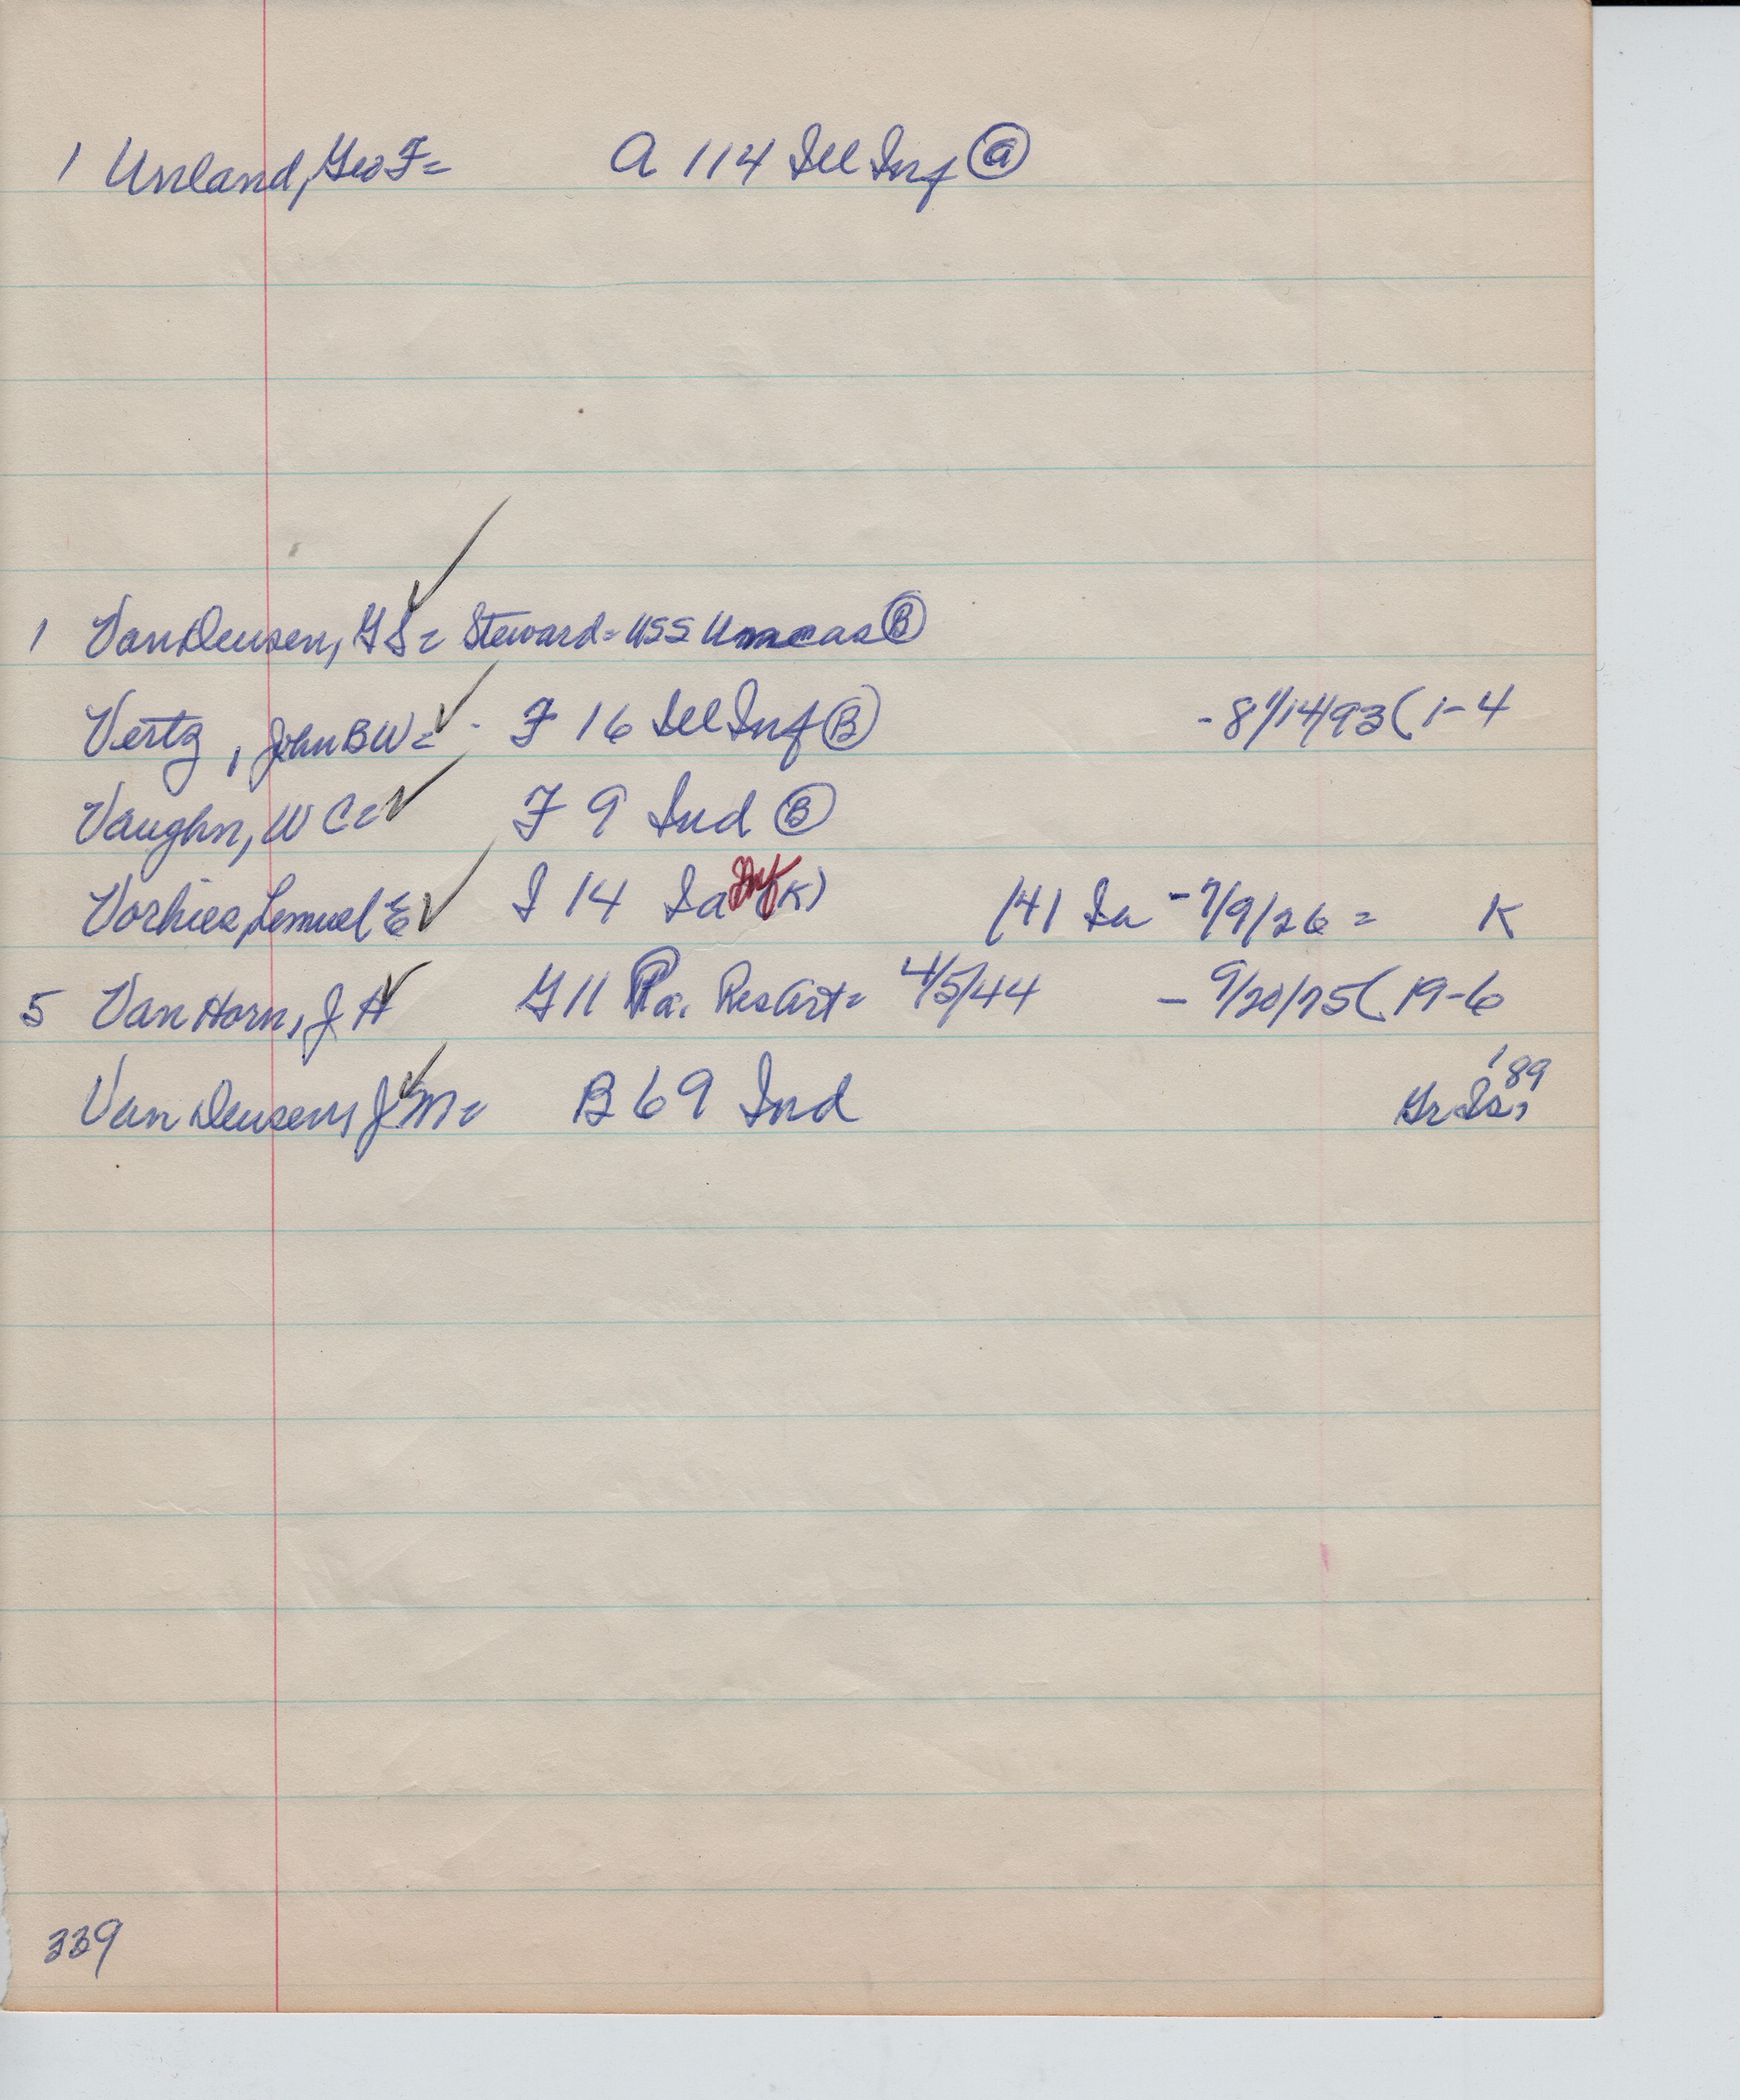 1 Unland, Geo F= A 114 Ill Inf (a)
1 VanDeusen, G S= Steward= USS Uncas (B)
Vertz, John B W= - F 16 Ill Inf (B) - 8/14/93 ( 1-4
Vaughn, W C= F 9 Ind (B)
Vorhies, Lemuel E I 14 Ia Inf (K) (41 Ia - 7/9/26 = K
5 Van Horn, J H G 11 Pa. Res Art= 4/5/44 - 9/20/25 ( 19-6
Van Deusen, J M= B 69 Ind Gr Is, '89
339